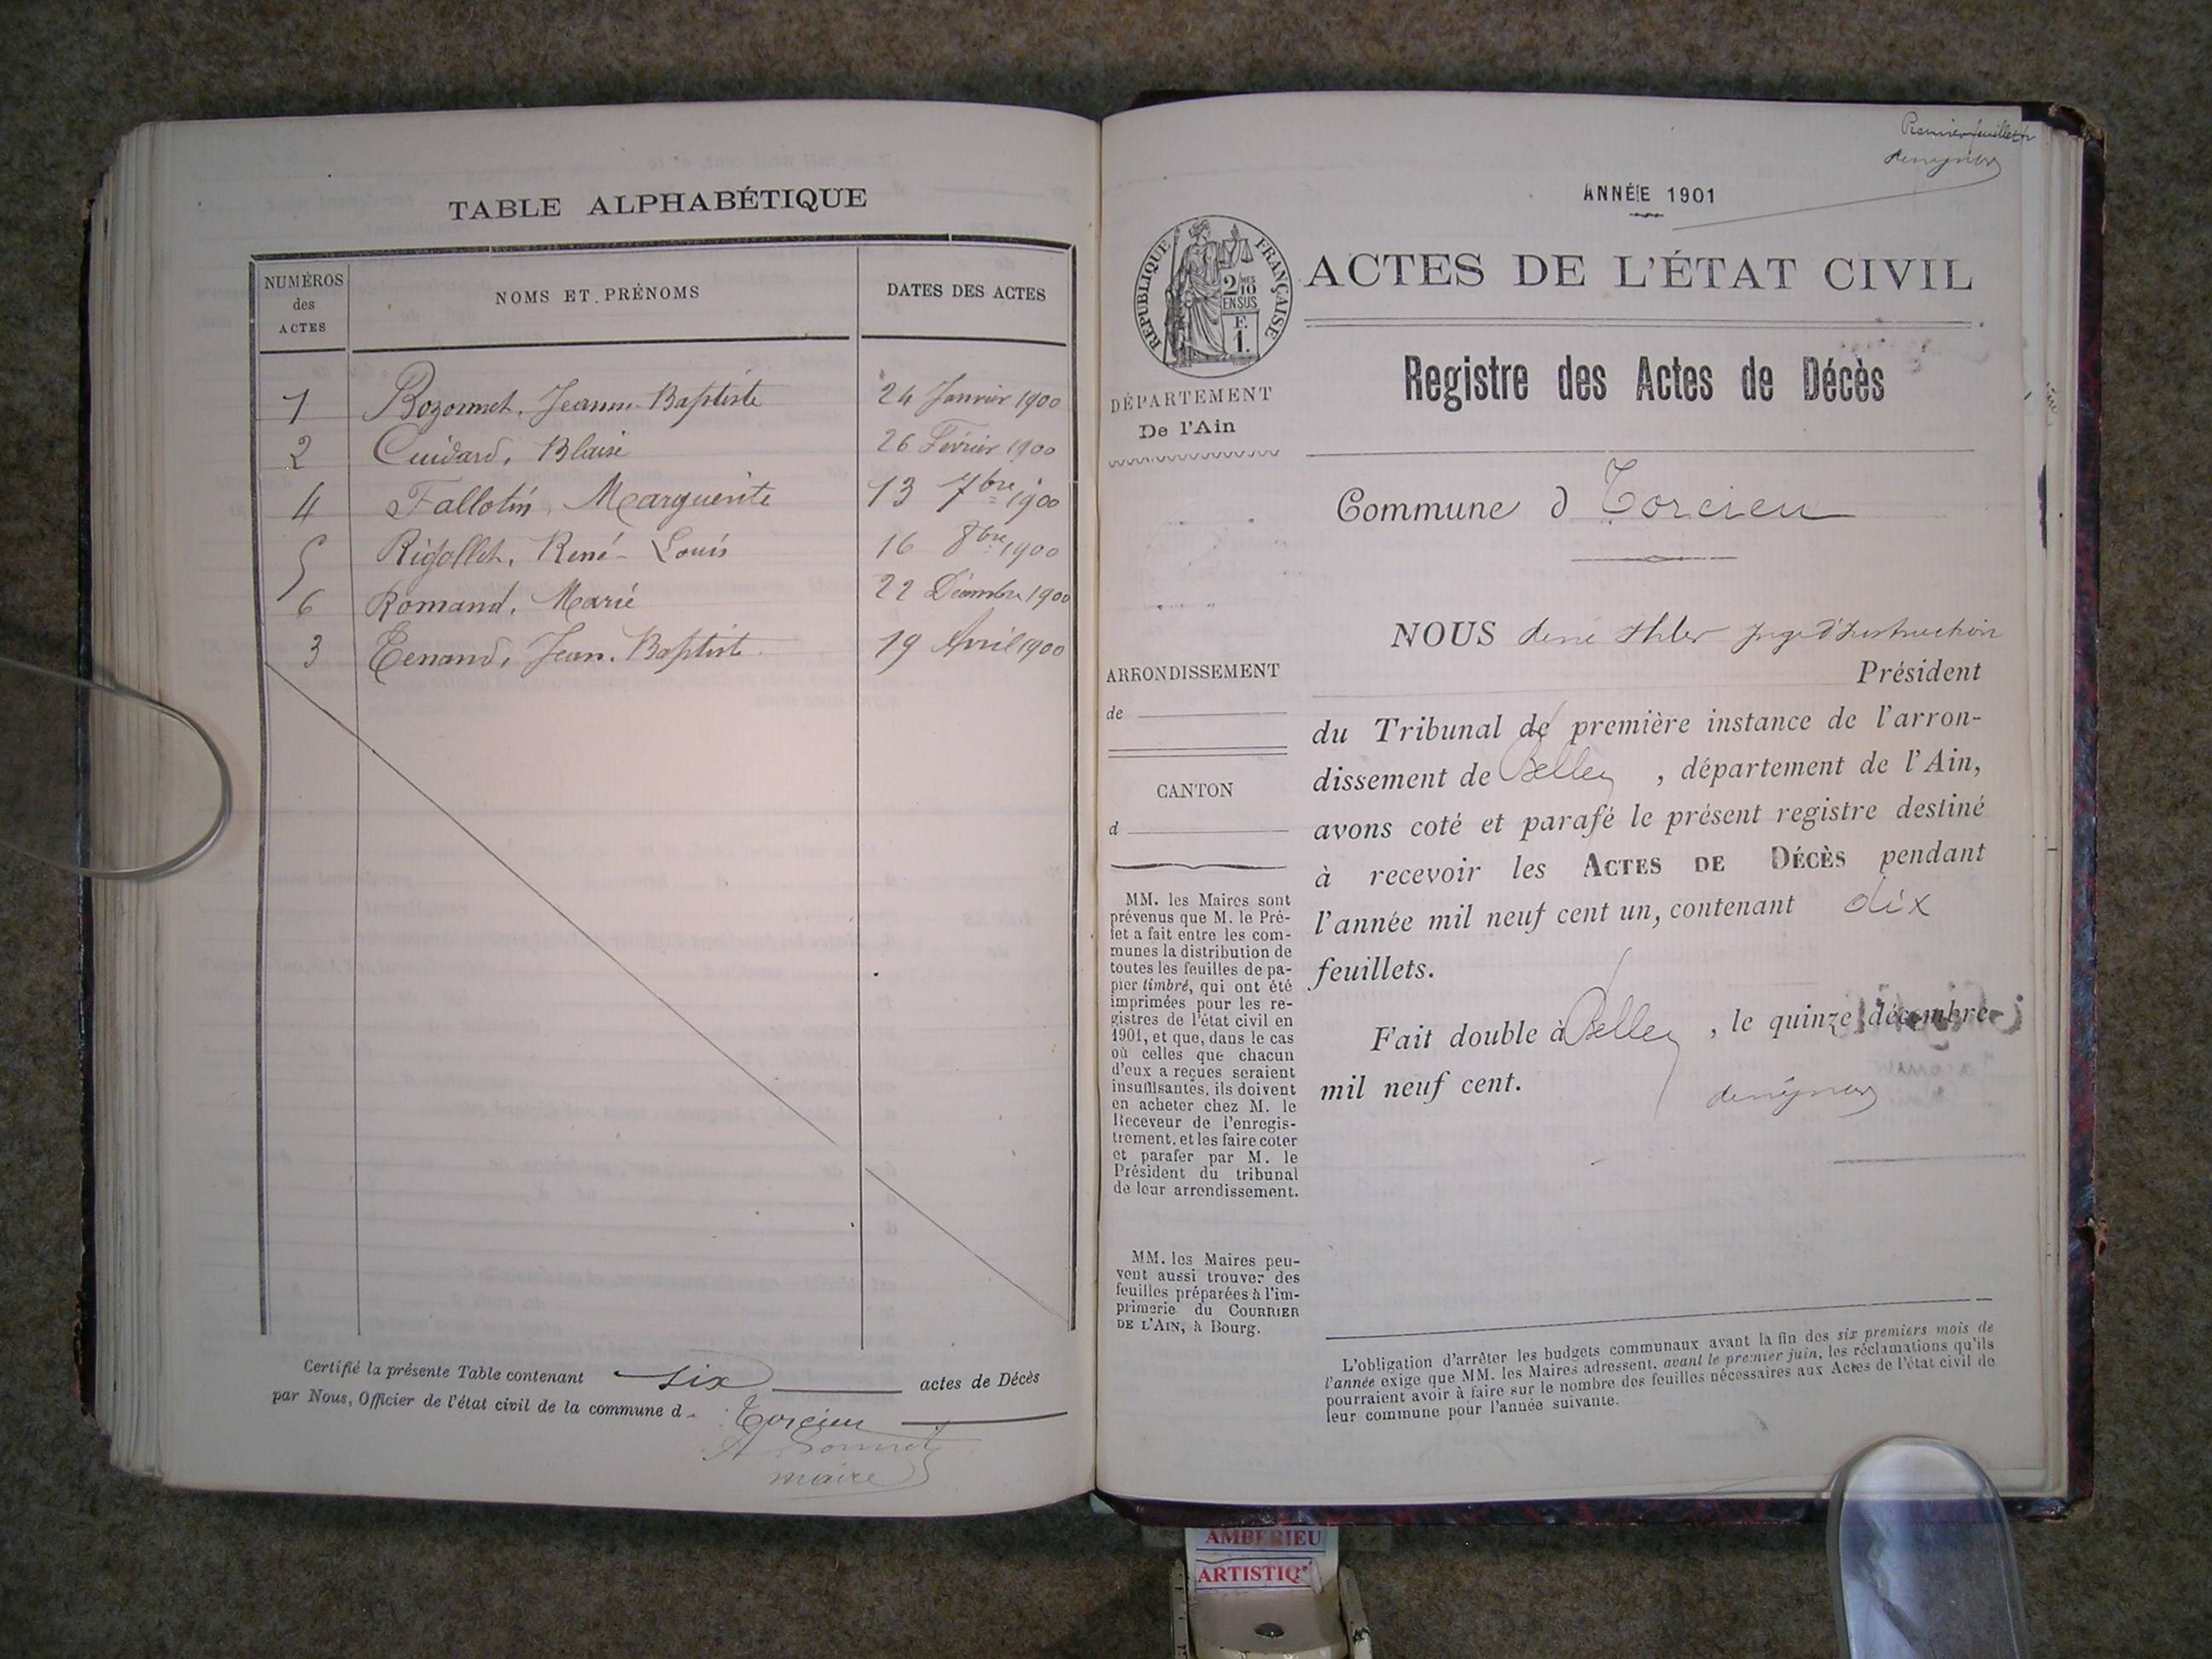 TABLE ALPHABÉTIQUE
NUMÉROS
des
ACTES
NOMS ET PRÉNOMS
DATES DES ACTES
1 Bozonnet, Jeanne-Baptiste 24 Janvier 1900
2 Cuidard, Blaise 26 Février 1900
4 Fallotin, Marguerite 13 7bre 1900
5 Rigollet, René-Louis 16 8bre 1900
6 Romand, Marie 22 Décembre 1900
3 Tenand, Jean-Baptiste 19 Avril 1900
Certifié la présente Table contenant six actes de Décès
par Nous, Officier de l'état civil de la commune d Torcieu
maire
Premier feuillet
ANNÉE 1901
RÉPUBLIQUE FRANÇAISE
2/10
EN SUS
F.
1.
ACTES DE L'ÉTAT CIVIL
Registre des Actes de Décès
DÉPARTEMENT
De l'Ain
Commune d Torcieu
ARRONDISSEMENT
de
CANTON
d
MM. les Maires sont
prévenus que M. le Pré-
fet a fait entre les com-
munes la distribution de
toutes les feuilles de pa-
pier timbré, qui ont été
imprimées pour les re-
gistres de l'état civil en
1901, et que, dans le cas
où celles que chacun
d'eux a reçues seraient
insuffisantes, ils doivent
en acheter chez M. le
Receveur de l'enregis-
trement, et les faire coter
et parafer par M. le
Président du tribunal
de leur arrondissement.
MM. les Maires peu-
vent aussi trouver des
feuilles préparées à l'im-
primerie du COURRIER
DE L'AIN, à Bourg.
NOUS Juge d'Instruction
Président
du Tribunal de première instance de l'arron-
dissement de Belley, département de l'Ain,
avons coté et parafé le présent registre destiné
à recevoir les ACTES DE DÉCÈS pendant
l'année mil neuf cent un, contenant dix
feuillets.
Fait double à Belley, le quinze décembre
mil neuf cent.
L'obligation d'arrêter les budgets communaux avant la fin des six premiers mois de
l'année exige que MM. les Maires adressent, avant le premier juin, les réclamations qu'ils
pourraient avoir à faire sur le nombre des feuilles nécessaires aux Actes de l'état civil de
leur commune pour l'année suivante.
AMBERIEU
ARTISTIQ